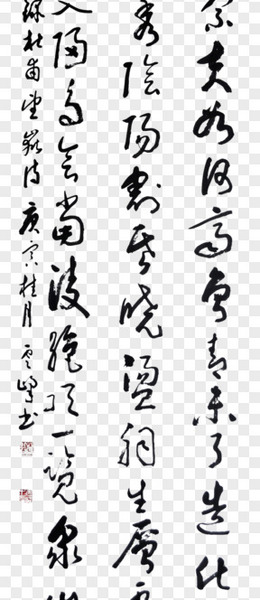 宗夫如何齊魯青未了造化
秀陰陽割昏曉盪胸生層雲
入歸鳥會當凌絕頂一覽眾山
錄杜甫望嶽詩庚寅桂月雲峰書